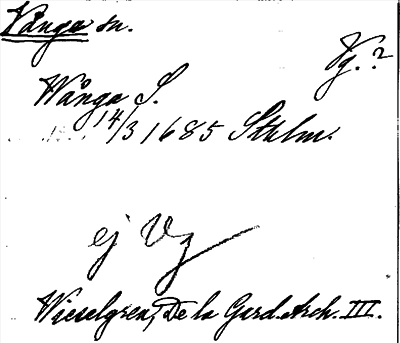 Vånga sn.
Vg.?
Wånga S.
14/3 1685 Sthlm.
ej Vg
Wieselgren, De la Gard. Arch. III.